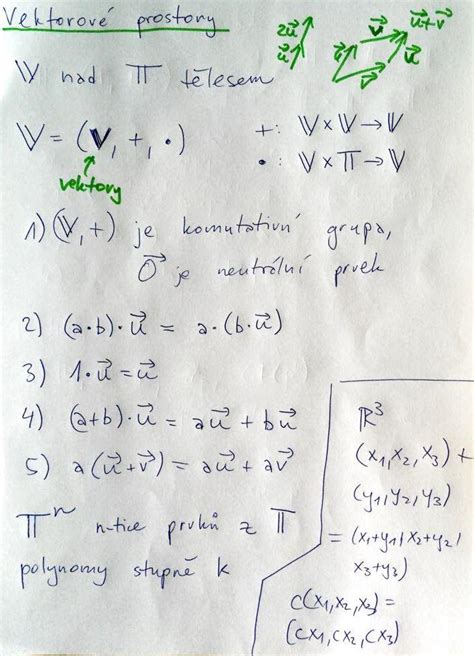 Vektorové prostory
2u⃗ u⃗ u⃗ v⃗ v⃗ u⃗ u⃗+v⃗
𝕍 nad 𝕋 tělesem
𝕍 = (V, +, ·)
vektory
+: 𝕍×𝕍→𝕍
•: 𝕍×𝕋→𝕍
1) (𝕍,+) je komutativní grupa,
O⃗ je neutrální prvek
2) (a·b)·u⃗ = a·(b·u⃗)
3) 1·u⃗=u⃗
4) (a+b)·u⃗ = au⃗ + bu⃗
5) a(u⃗+v⃗) = au⃗ + av⃗
𝕋ⁿ n-tice prvků z 𝕋
polynomy stupně k
ℝ³
(x₁,x₂,x₃)+
(y₁,y₂,y₃)
=(x₁+y₁,x₂+y₂,
x₃+y₃)
c(x₁,x₂,x₃)=
(cx₁,cx₂,cx₃)